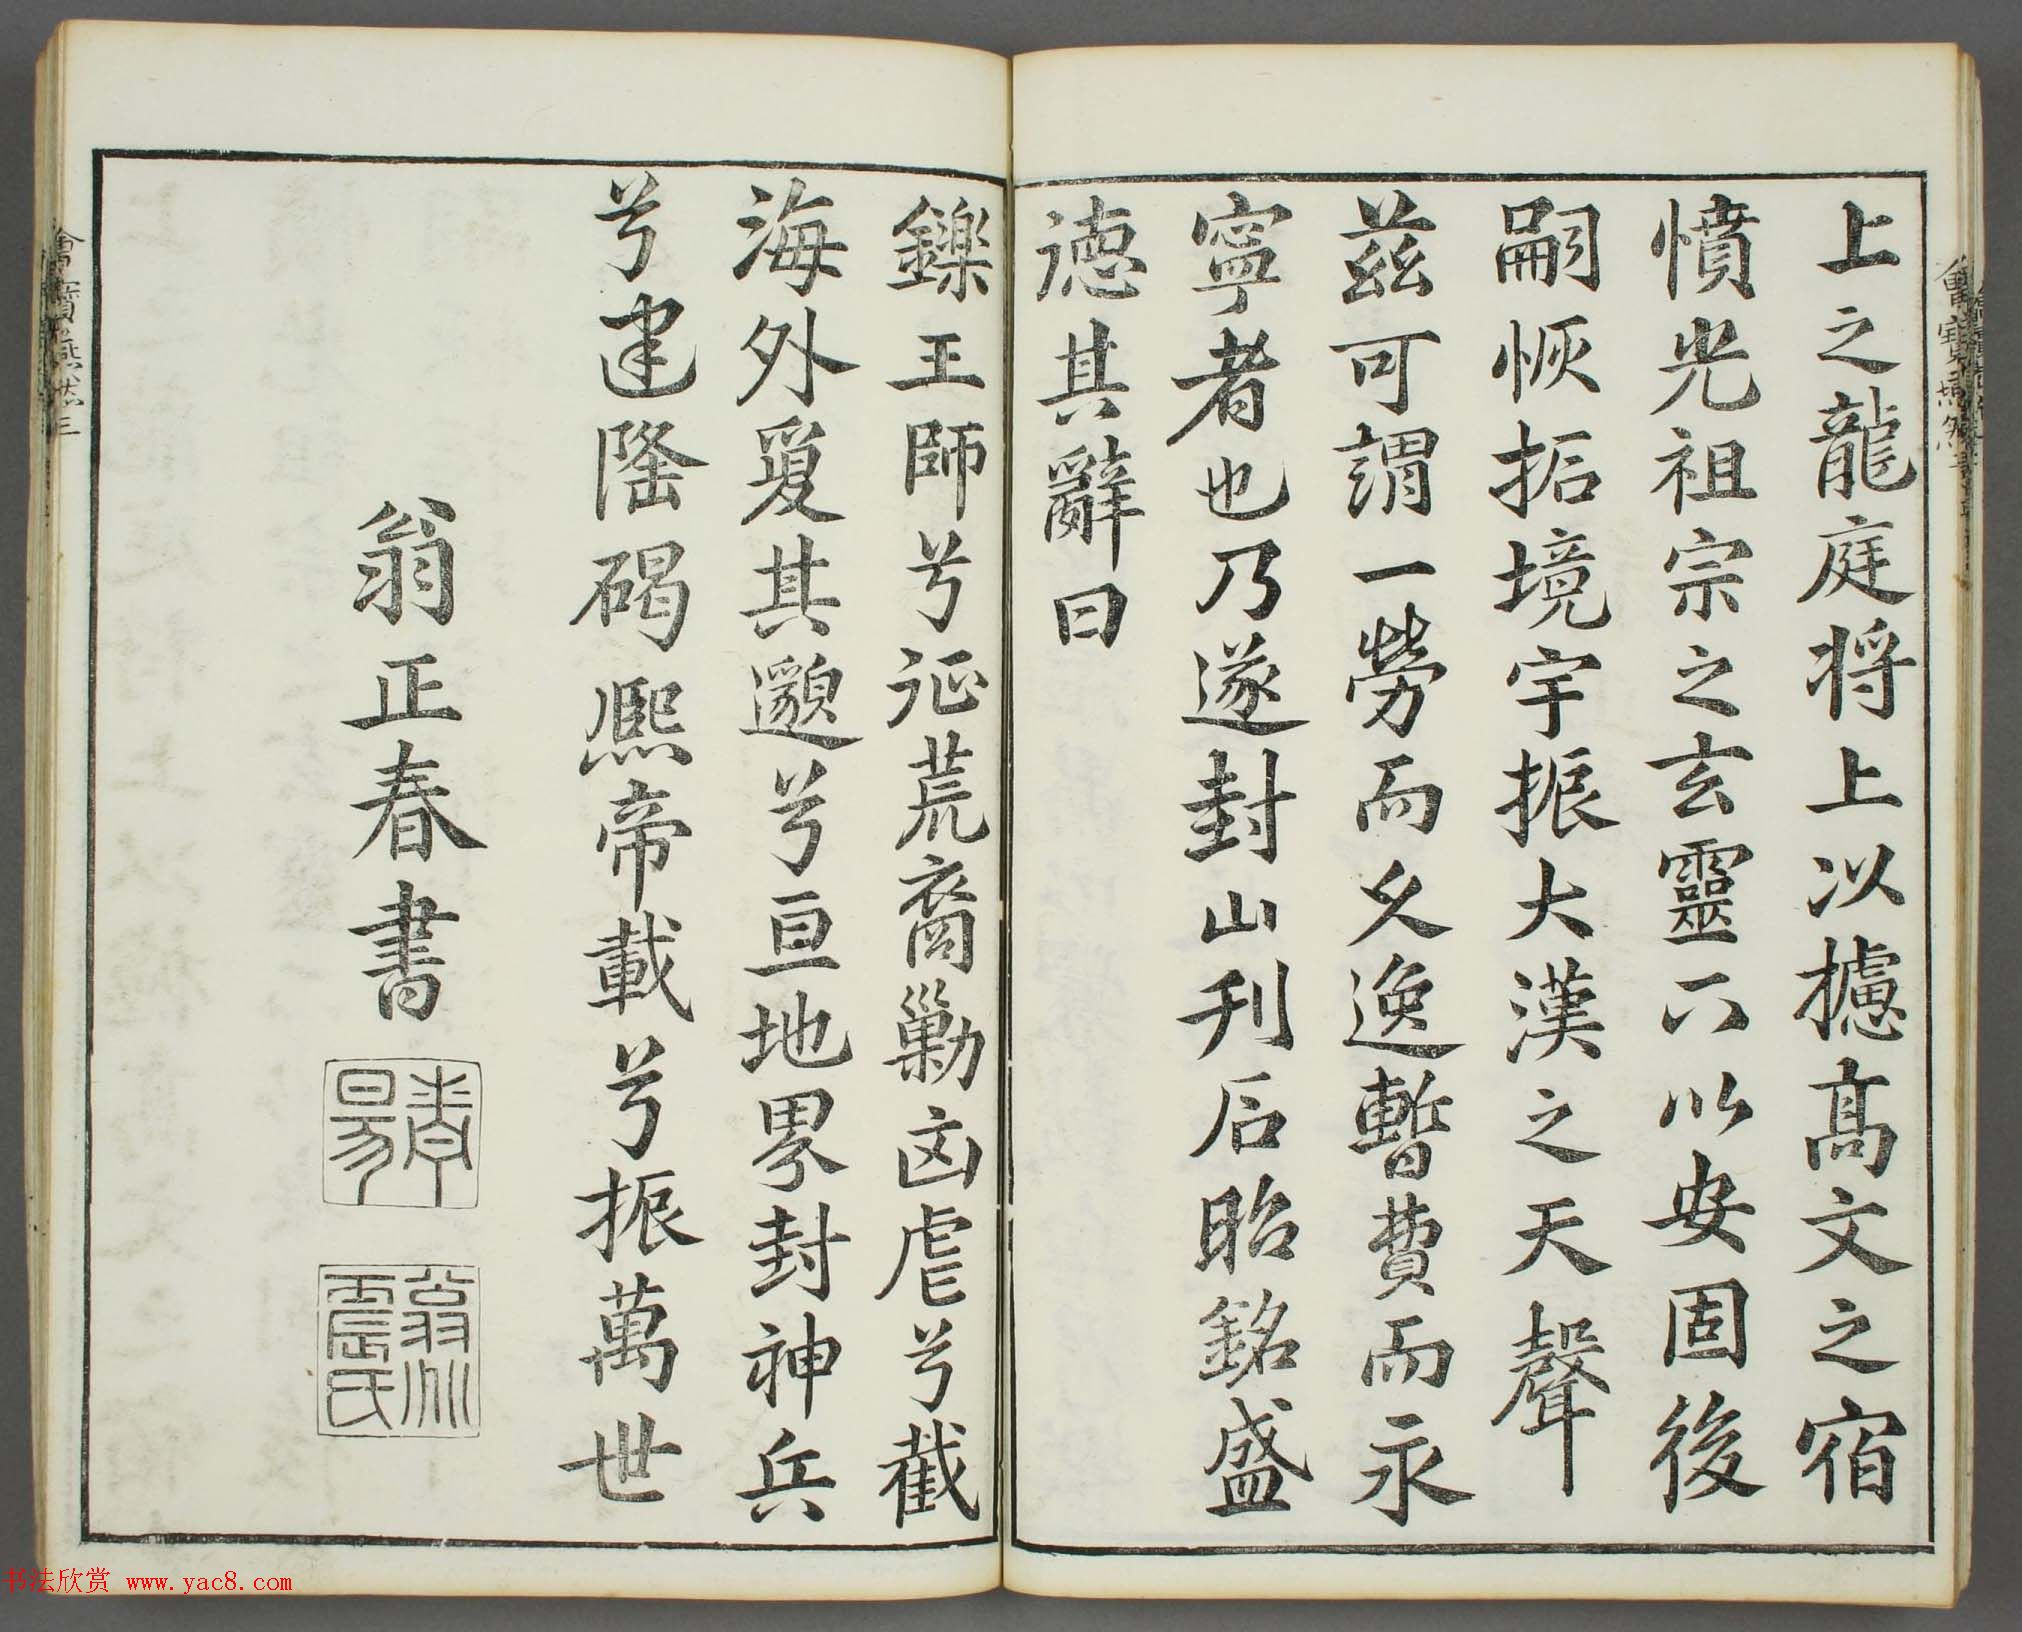 上之龍庭将上以攄高文之宿
憤光祖宗之玄靈下以安固後
嗣恢拓境宇振大漢之天聲
茲可謂一勞而久逸暫費而永
寧者也乃遂封山刊石昭銘盛
德其辭曰
鑠王師兮征荒裔勦凶虐兮截
海外敻其邈兮亘地界封神兵
兮建隆碣熙帝載兮振萬世
翁正春書
青昜
翁兆震氏
燕然三
书法欣赏 www.yac8.com